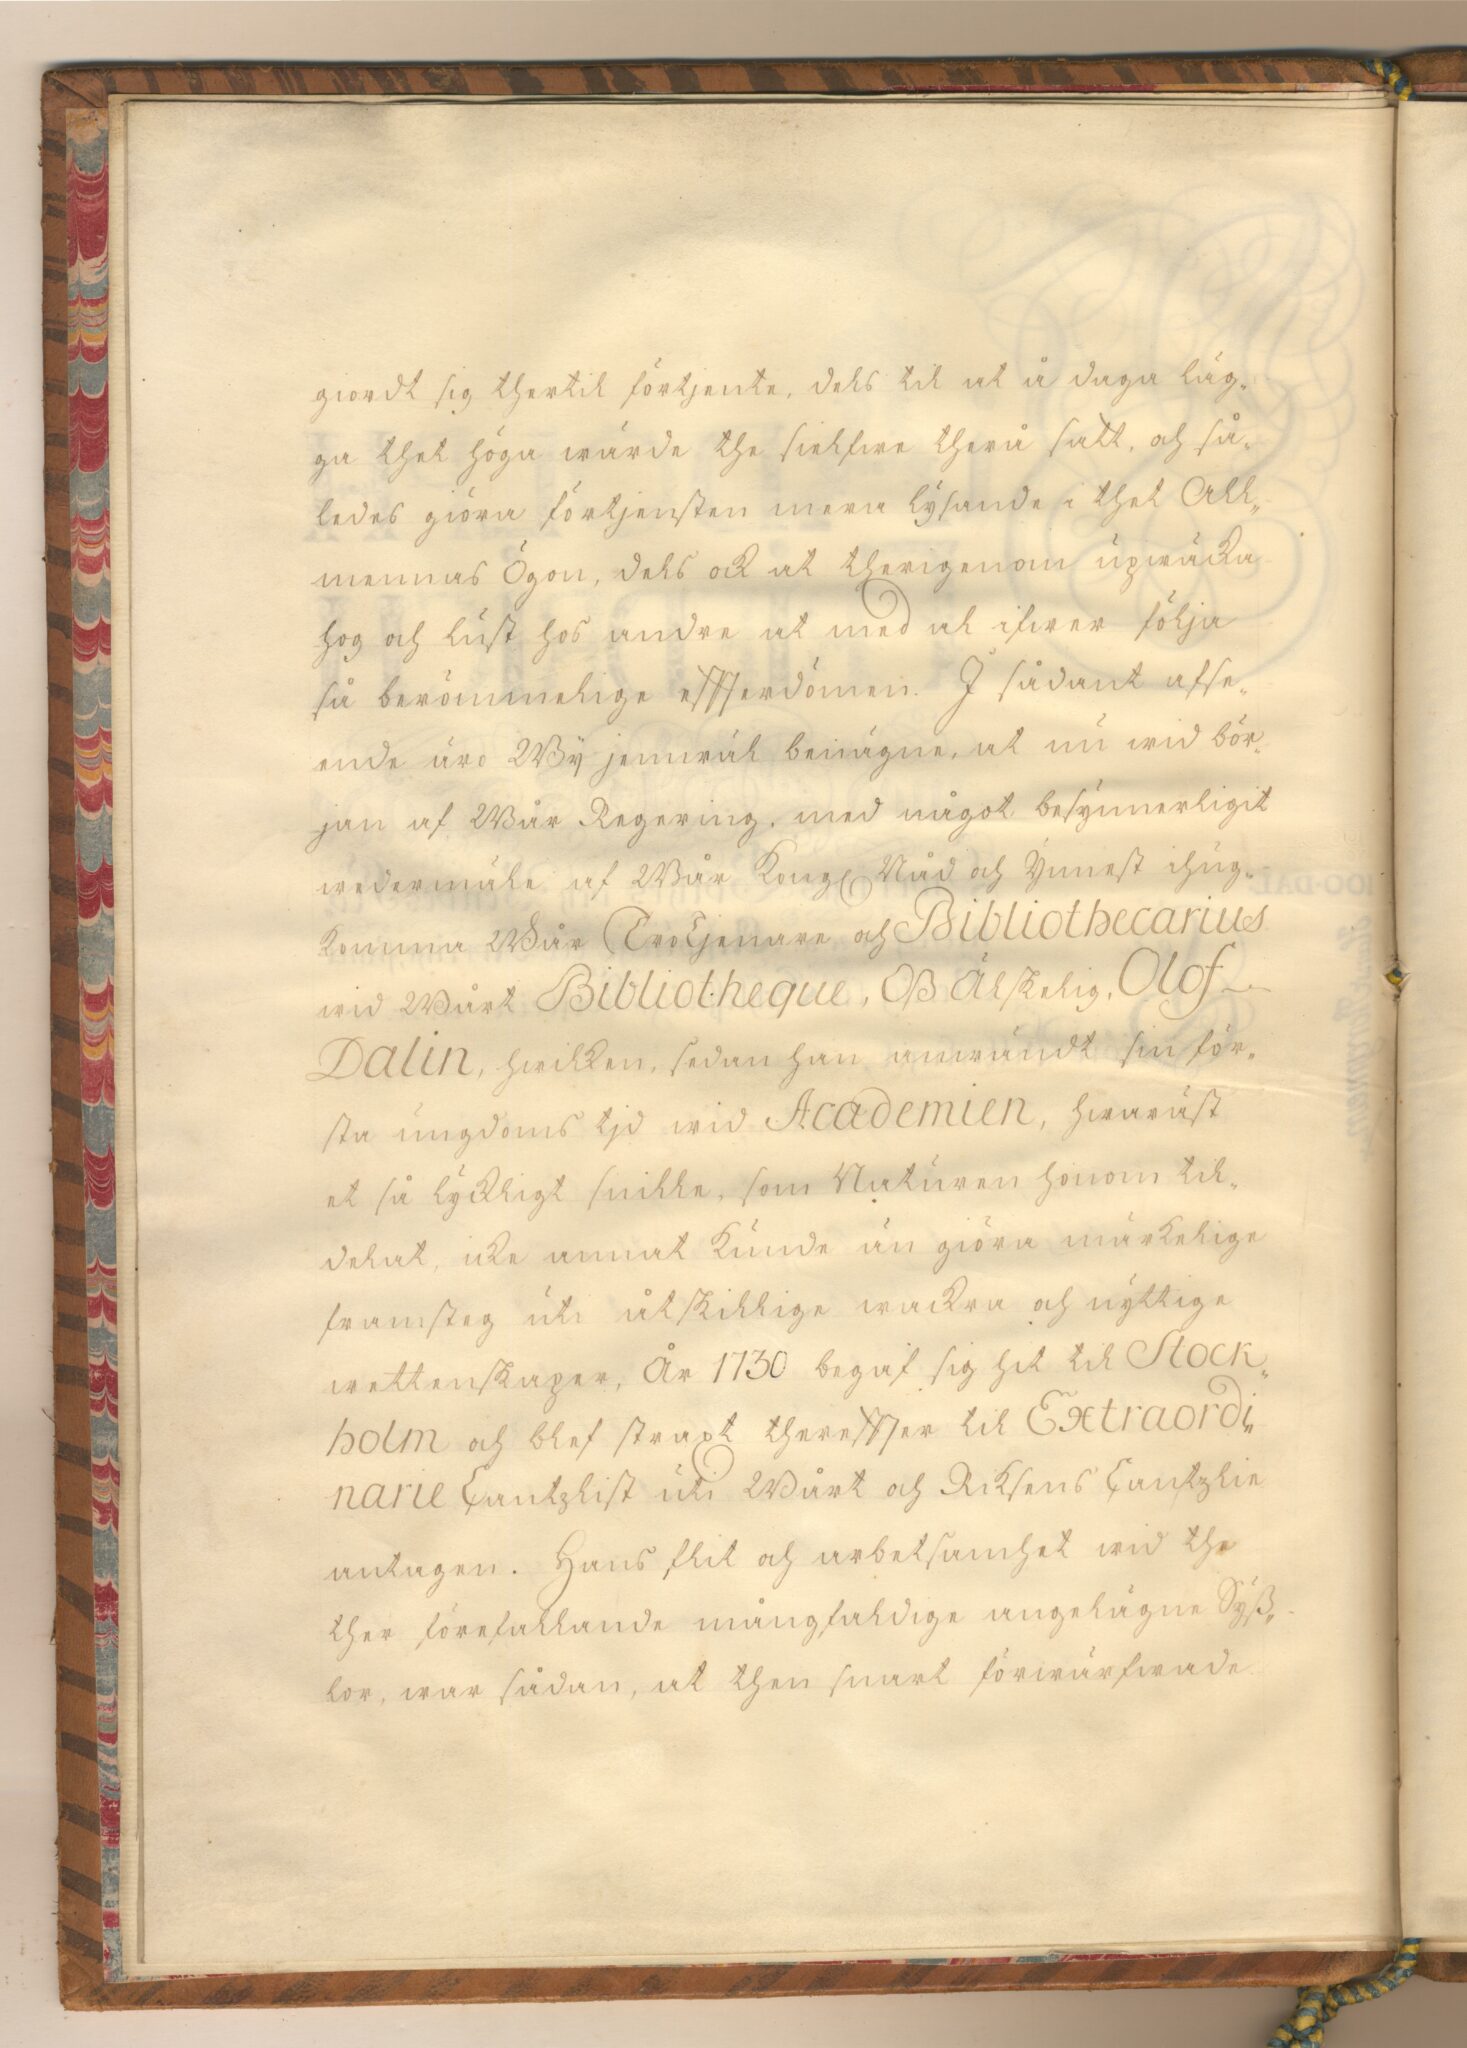 giordt sig thertil förtjente, dels til at å daga läg„
ga thet höga wärde the sielfwe therå satt, och så„
ledes giöra förtjensten mera lysande i thet All„
mennas Ögon, dels ock at therigenom upwäcka
hog och lust hos andre at med al ifwer följa
så berömmelige effterdömen. I sådant afse„
ende äro Wÿ jemwäl benägne, at nu wid bör„
jan af Wår Regering, med något besynnerligit
wedermäle af Wår Kongl. Nåd och Ynnest ihug„
komma Wår Trotjenare och Bibliothecarius
wid Wårt Bibliotheque, Oß Älskelig, Olof
Dalin, hwilken, sedan han anwändt sin för„
sta ungdoms tjd wid Academien, hwaräst
et så lyckligt snille, som Naturen honom til„
delat, icke annat kunde än giöra märkelige
framsteg uti åtskillige wackra och nyttige
wettenskaper, År 1730 begaf sig hit til Stock„
holm och blef straxt thereffter til Extraordi„
narie Cantzlist uti Wårt och Riksens Cantzlie
antagen. Hans flit och arbetsamhet wid the
ther förefallande mångfaldige angelägne Syß„
lor, war sådan, at then snart förwärfwade